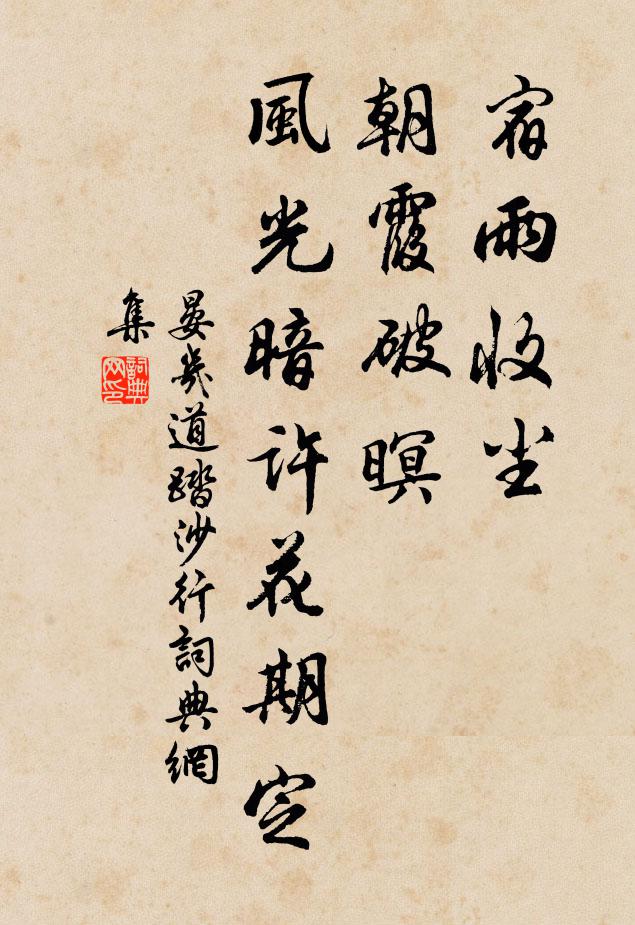 宿雨收尘
朝霞破暝
風光暗许花期定
晏幾道踏沙行詞典網
集
詞典
网印